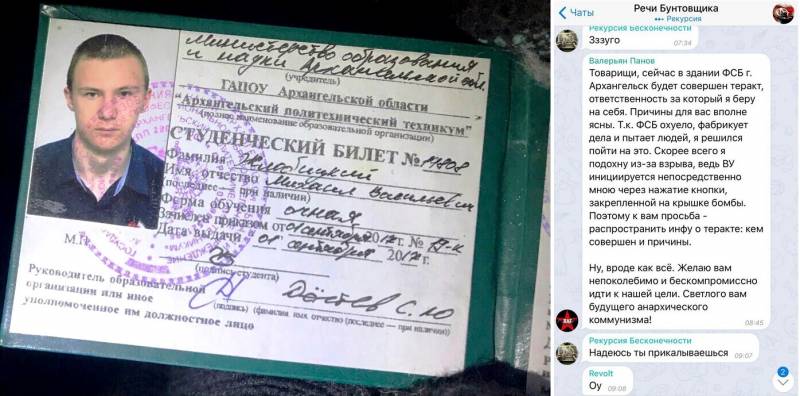 Министерство образования
и науки Архангельской обл.
(учредитель)
ГАПОУ Архангельской области
"Архангельский политехнический техникум"
(полное наименование образовательной организации)
СТУДЕНЧЕСКИЙ БИЛЕТ №
Фамилия Жлобицкий
Имя, отчество Михаил Васильевич
(последнее при наличии)
Форма обучения очная
Зачислен приказом от 01 сентября 2017г. №
Дата выдачи 01 сентября 2017г.
М.П.
(подпись студента)
Руководитель образовательной
организации или иное
уполномоченное им должностное лицо
(подпись) (фамилия имя, отчество (последнее — при наличии)
Чаты
Речи Бунтовщика
Рекурсия
Рекурсия Бесконечности
Зззуго
07:34
Валерьян Панов
Товарищи, сейчас в здании ФСБ г.
Архангельск будет совершен теракт,
ответственность за который я беру
на себя. Причины для вас вполне
ясны. Т.к. ФСБ охуело, фабрикует
дела и пытает людей, я решился
пойти на это. Скорее всего я
подохну из-за взрыва, ведь ВУ
инициируется непосредственно
мною через нажатие кнопки,
закрепленной на крышке бомбы.
Поэтому к вам просьба -
распространить инфу о теракте: кем
совершен и причины.
Ну, вроде как всё. Желаю вам
непоколебимо и бескомпромиссно
идти к нашей цели. Светлого вам
будущего анархического
коммунизма!
08:45
Рекурсия Бесконечности
Надеюсь ты прикалываешься
09:07
Revolt
Оу
09:08
2